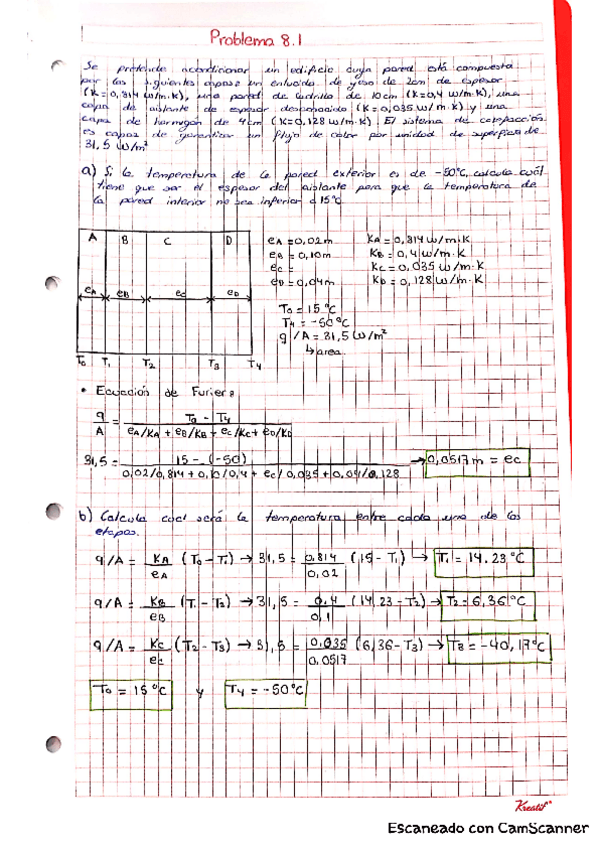 Problema 8.1
Se pretende acondicionar un edificio cuya pared está compuesta
por las siguientes capas: un enlucido de yeso de 2cm de espesor
(K=0,814 w/m·K), una pared de ladrillo de 10cm (K=0,4 w/m·K), una
capa de aislante de espesor desconocido (K=0,035 w/m·K) y una
capa de hormigón de 4cm (K=0,128 w/m·K) El sistema de calefacción
es capaz de garantizar un flujo de calor por unidad de superficie de
31,5 w/m²
a) Si la temperatura de la pared exterior es de -50ºC, calcula cuál
tiene que ser el espesor del aislante para que la temperatura de
la pared interior no sea inferior a 15ºC
A B C D
eA eB eC eD
T0 T1 T2 T3 T4
eA = 0,02m KA = 0,814 w/m·K
eB = 0,10m KB = 0,4 w/m·K
eC = KC = 0,035 w/m·K
eD = 0,04m KD = 0,128 w/m·K
T0 = 15 ºC
T4 = -50ºC
q/A = 31,5 w/m²
↳ area
• Ecuación de Furier:
q/A = (T0 - T4) / (eA/KA + eB/KB + eC/KC + eD/KD)
31,5 = (15 - (-50)) / (0,02/0,814 + 0,10/0,4 + eC/0,035 + 0,04/0,128) → 0,0517m = eC
b) Calcula cual será la temperatura entre cada una de las
etapas.
q/A = KA/eA (T0 - T1) → 31,5 = 0,814/0,02 (15 - T1) → T1 = 14.23ºC
q/A = KB/eB (T1 - T2) → 31,5 = 0,4/0,1 (14.23 - T2) → T2 = 6,36ºC
q/A = KC/eC (T2 - T3) → 31,5 = 0,035/0,0517 (6,36 - T3) → T3 = -40,17ºC
T0 = 15ºC y T4 = -50ºC
Kreatif
Escaneado con CamScanner